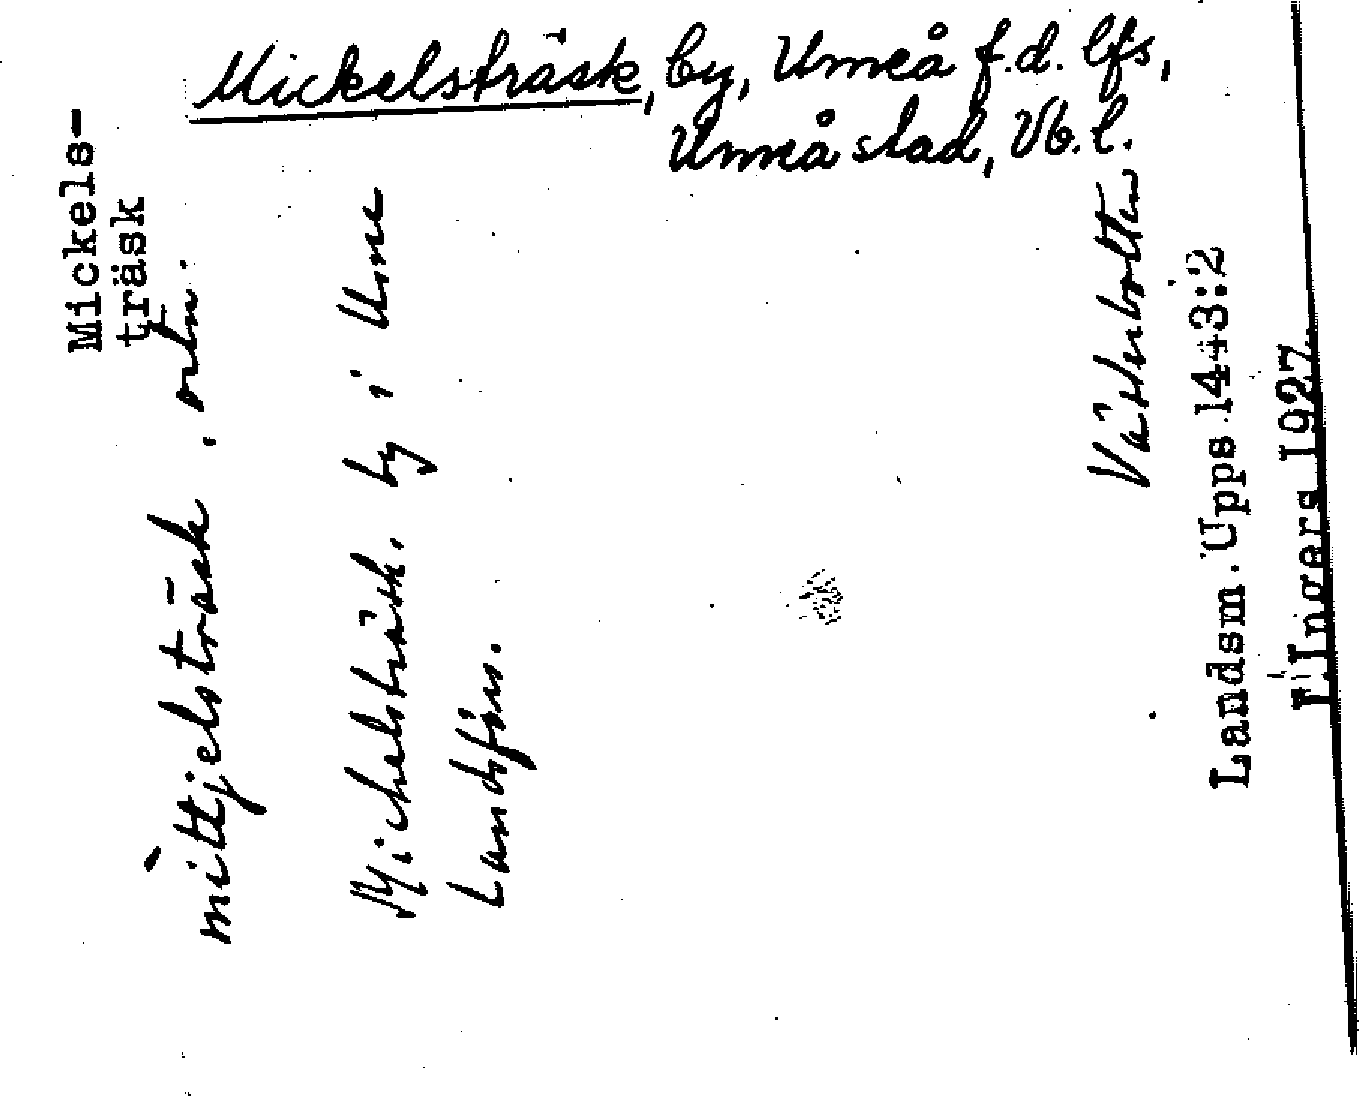 Mickelsträsk, by, Umeå f.d. lfs,
Umeå stad, Vb. l.
Mickels-
träsk
mìttjelsträsk. ortn.
Mickelsträsk. by i Ume
Landsförs.
Västerbotten
Landsm. Upps 1443:2
F. Ingers 1927